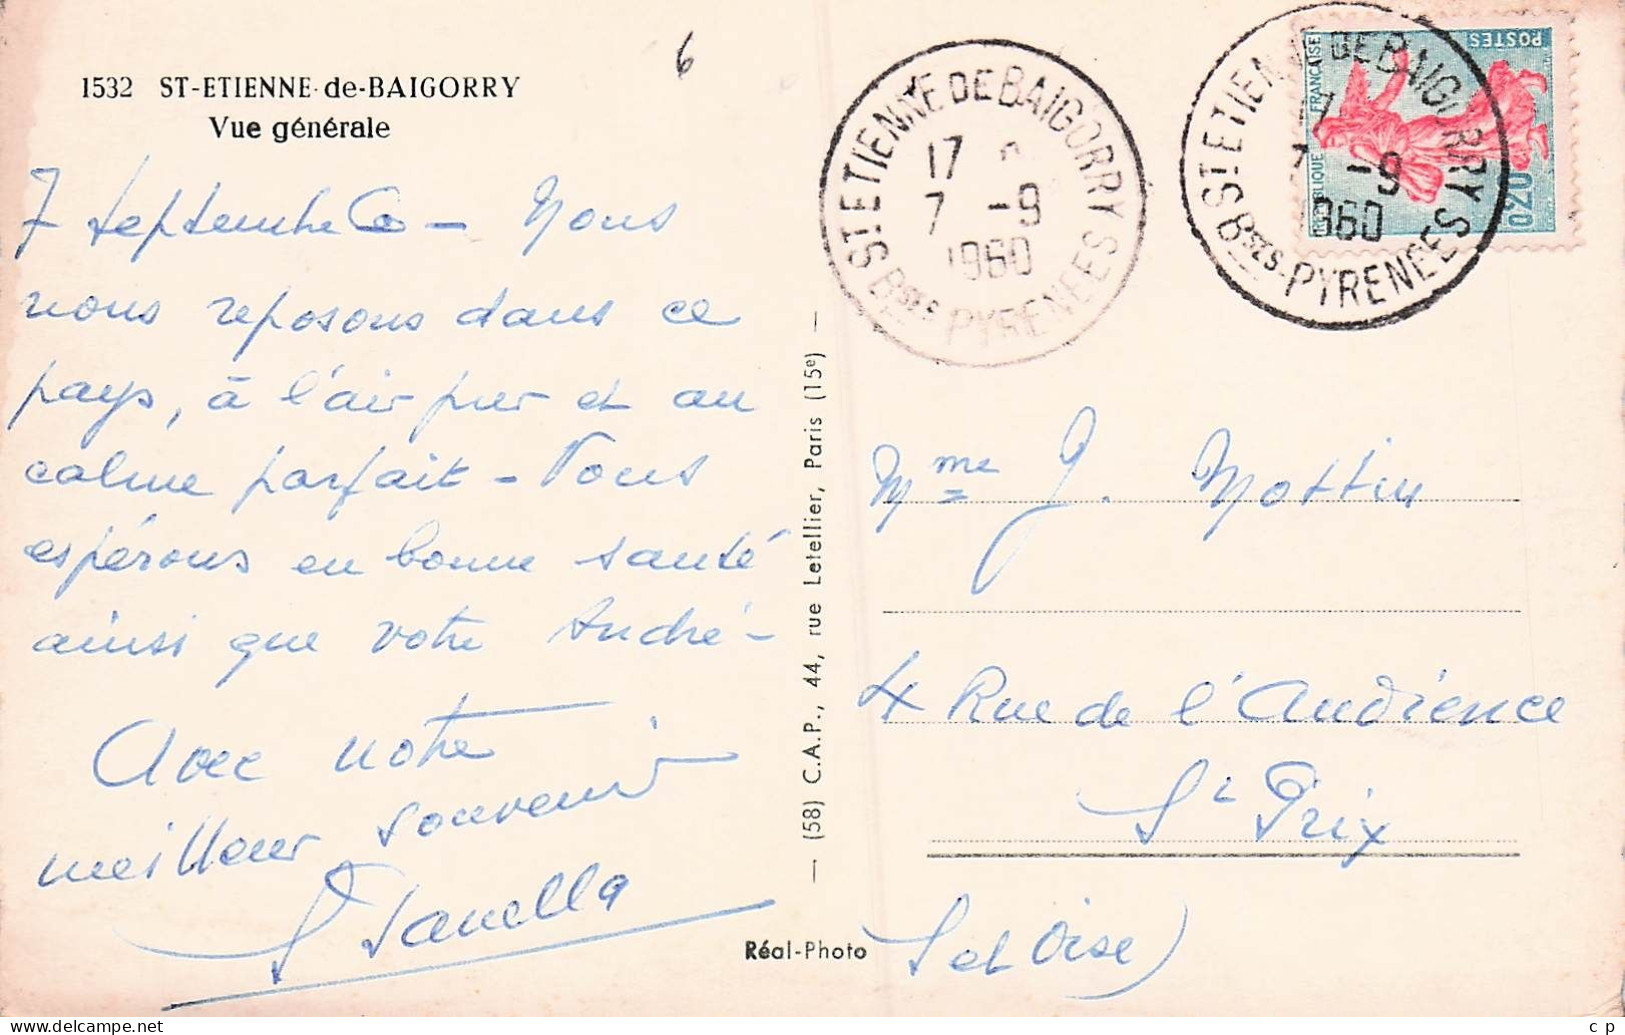 6
1532 ST-ETIENNE-de-BAIGORRY
Vue générale
7 septembre 60 - Nous
nous reposons dans ce
pays, à l'air pur et au
calme parfait - Vous
espérons en bonne santé
ainsi que votre André -
Avec notre
meilleur souvenir
ST ETIENNE DE BAIGORRY
17
7 -9
1960
BSES-PYRENEES
ST ETIENNE DE BAIGORRY
17
7 -9
1960
BSES-PYRENEES
REPUBLIQUE FRANÇAISE
POSTES
0,20
— (58) C.A.P., 44, rue Letellier, Paris (15e) —
Réal-Photo
Mme J. Mottin
4 Rue de l'Audience
St Prix
(S et Oise)
c p
www.delcampe.net